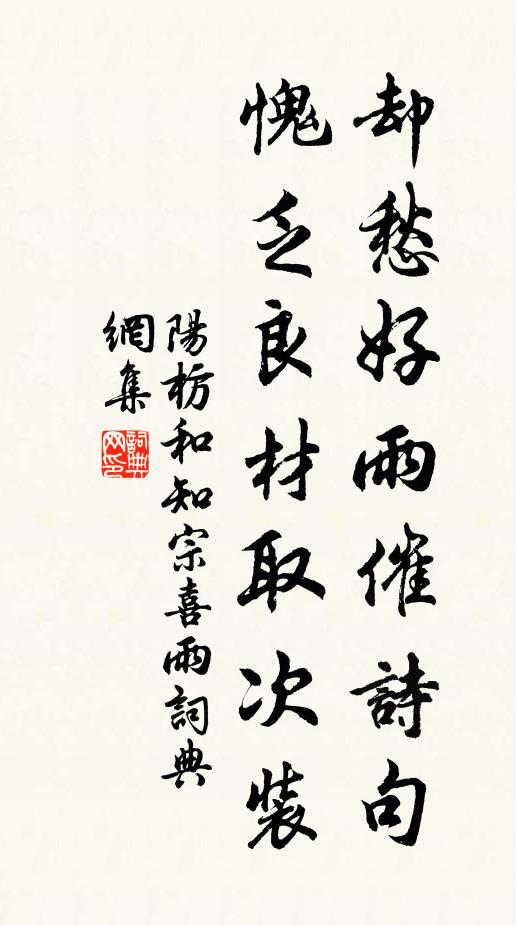 却愁好雨催詩句
愧乏良材取次裝
陽枋和知宗喜雨詞典
網集
詞典網印